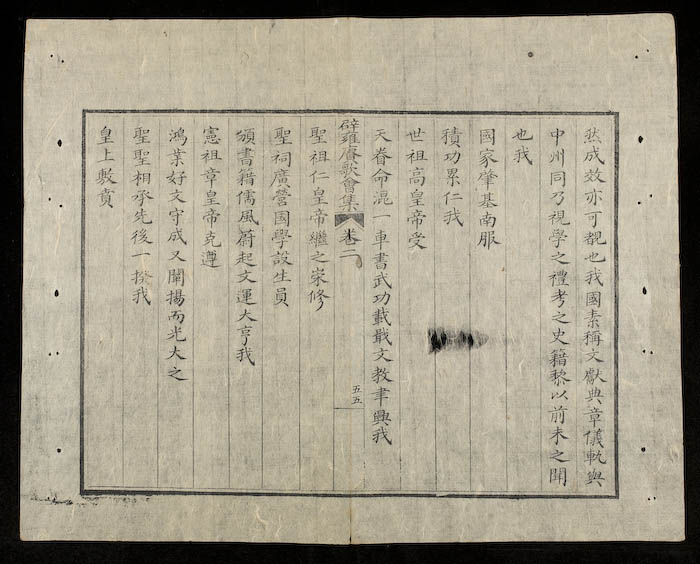 然成效亦可覩也我國素稱文獻典章儀軌與
中州同乃視學之禮考之史籍黎以前未之聞
也我
國家肇基南服
積功累仁我
世祖高皇帝受
天眷命混一車書武功載戢文教聿興我
辟雍賡歌會集 卷二
五五
聖祖仁皇帝繼之崇修
聖祠廣營國學設生員
頒書籍儒風蔚起文運大亨我
憲祖章皇帝克遵
鴻業好文守成又闡揚而光大之
聖聖相承先後一揆我
皇上敷賁